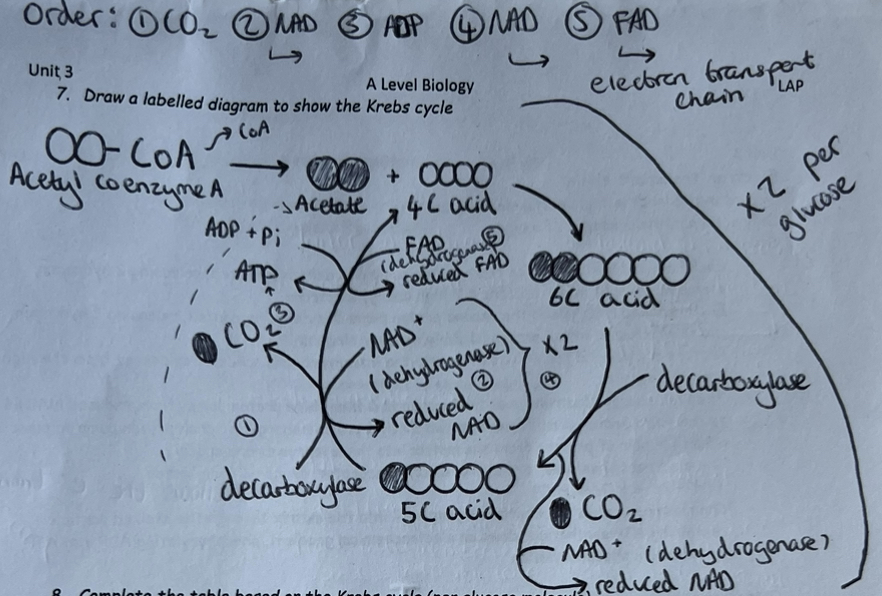 Order: ①CO₂ ②NAD ③ ADP ④NAD ⑤ FAD
electron transport chain
Unit 3
A Level Biology
LAP
7. Draw a labelled diagram to show the Krebs cycle
-CoA
CoA
Acetyl coenzyme A
+
Acetate
4C acid
x2 per glucose
ADP + Pi
FAD
(dehydrogenase) ⑤
ATP
reduced FAD
6C acid
③
CO₂
NAD⁺
(dehydrogenase)
x2
②
④
decarboxylase
reduced NAD
①
decarboxylase
5C acid
CO₂
NAD⁺ (dehydrogenase)
reduced NAD
8. Complete the table based on the Krebs cycle (per glucose molecule)